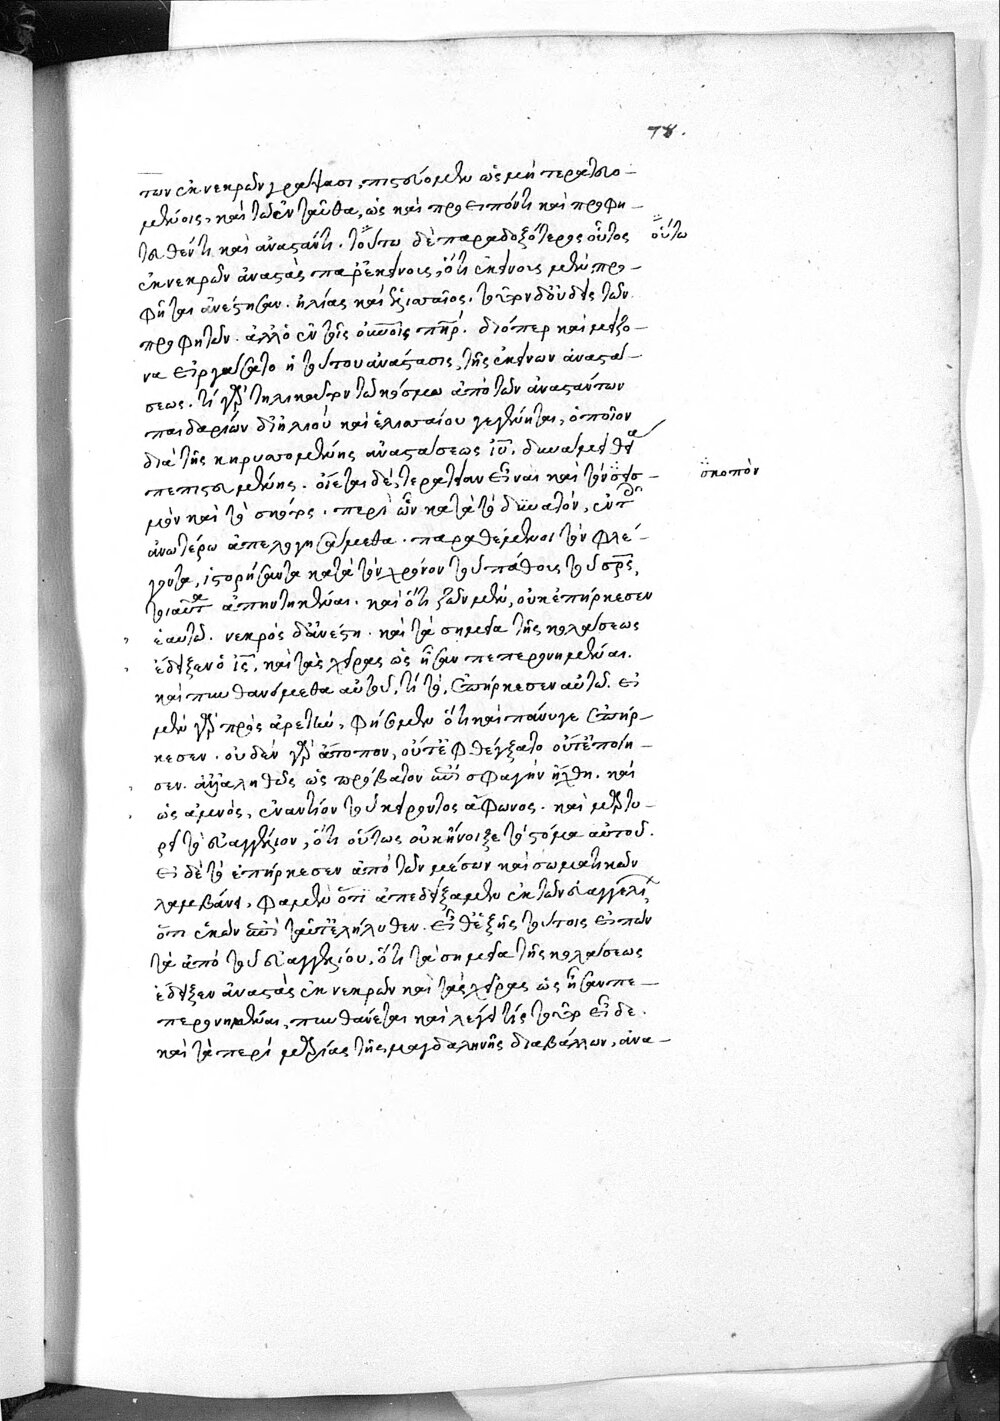 78.
των ἐκ νεκρῶν γράψασι, πιστεύομεν ὡς μὴ τερατευο-
μένοις, καὶ τῷ ἐνταῦθα, ὡς καὶ προειπόντι καὶ προφη-
τευθέντι καὶ ἀναστάντι. τούτῳ δὲ παραδοξότερος οὗτος οὕτω
ἐκ νεκρῶν ἀναστὰς παρ' ἐκείνοις, ὅτι ἐκείνοις μὲν προ-
φῆται ἀνέστησαν. ἡλίας καὶ ἑλισσαῖος. τοῦτον δ' οὐδεὶς τῶν
προφητῶν. ἀλλ' ὁ ἐν τοῖς οὐνοῖς πηρ. διόπερ καὶ μείζο-
να εἰργάσατο ἡ τούτου ἀνάστασις, τῆς ἐκείνων ἀναστά-
σεως. τί γὰρ τηλικοῦτον τῷ κόσμῳ ἀπὸ τῶν ἀναστάντων
παιδαρίων δι' ἡλιοὺ καὶ ἑλισσαίου γεγένηται, ὁποῖον
διὰ τῆς κηρυσσομένης ἀναστάσεως ἰῦ, δυνάμει θείᾳ
πεπιστευμένης. οἴεται δὲ, τερατείαν εἶναι καὶ τὸν σεισ- σκοπὸν
μὸν καὶ τὸ σκότος. περὶ ὧν κατὰ τὸ δυνατὸν, ἐν τοῖς
ἀνωτέρω ἀπελογησάμεθα. παραθέμενοι τὸν φλέ-
γοντα, ἱστορήσαντα κατὰ τὸν χρόνον τοῦ πάθους τοῦ σρς,
τοιαῦτα ἀπηντηκέναι. καὶ ὅτι ζῶν μὲν, οὐκ ἐπήρκεσεν
ἑαυτῷ. νεκρὸς δ' ἀνέστη. καὶ τὰ σημεῖα τῆς κολάσεως
ἔδειξεν ὁ ις, καὶ τὰς χεῖρας ὡς ἦσαν πεπερονημέναι.
καὶ πυνθανόμεθα αὐτοῦ, τί τὸ, ἐπήρκεσεν αὐτῷ. εἰ
μὲν γὰρ πρὸς ἀρετὴν, φήσομεν ὅτι καὶ πάνυγε ἐπήρ-
κεσεν. οὐδὲν γὰρ ἄτοπον, οὔτ' ἐφθέγξατο οὔτ' ἐποίη-
σεν. ἀλλ' ἀληθῶς ὡς πρόβατον ἐπὶ σφαγὴν ἤχθη. καὶ
ὡς ἀμνὸς, ἐναντίον τοῦ κείροντος ἄφωνος. καὶ μαρτυ-
ρεῖ τὸ εὐαγγέλιον, ὅτι οὕτως οὐκ ἤνοιξε τὸ στόμα αὐτοῦ.
εἰ δὲ τὸ ἐπήρκεσεν ἀπὸ τῶν μέσων καὶ σωματικῶν
λαμβάνει, φαμὲν ὅτι ἀπεδείξαμεν ἐκ τῶν εὐαγγελίων,
ὅτι ἑκὼν ἐπὶ ταῦτ' ἐλήλυθεν. εἶθ' ἑξῆς τούτοις εἰπὼν
τὰ ἀπὸ τοῦ εὐαγγελίου, ὅτι τὰ σημεῖα τῆς κολάσεως
ἔδειξεν ἀναστὰς ἐκ νεκρῶν καὶ τὰς χεῖρας ὡς ἦσαν πε-
περονημέναι, πυνθάνεται καὶ λέγει τίς τοῦτο εἶδε.
καὶ τὰ περὶ μαρίας τῆς μαγδαληνῆς διαβάλλων, ἀνα-